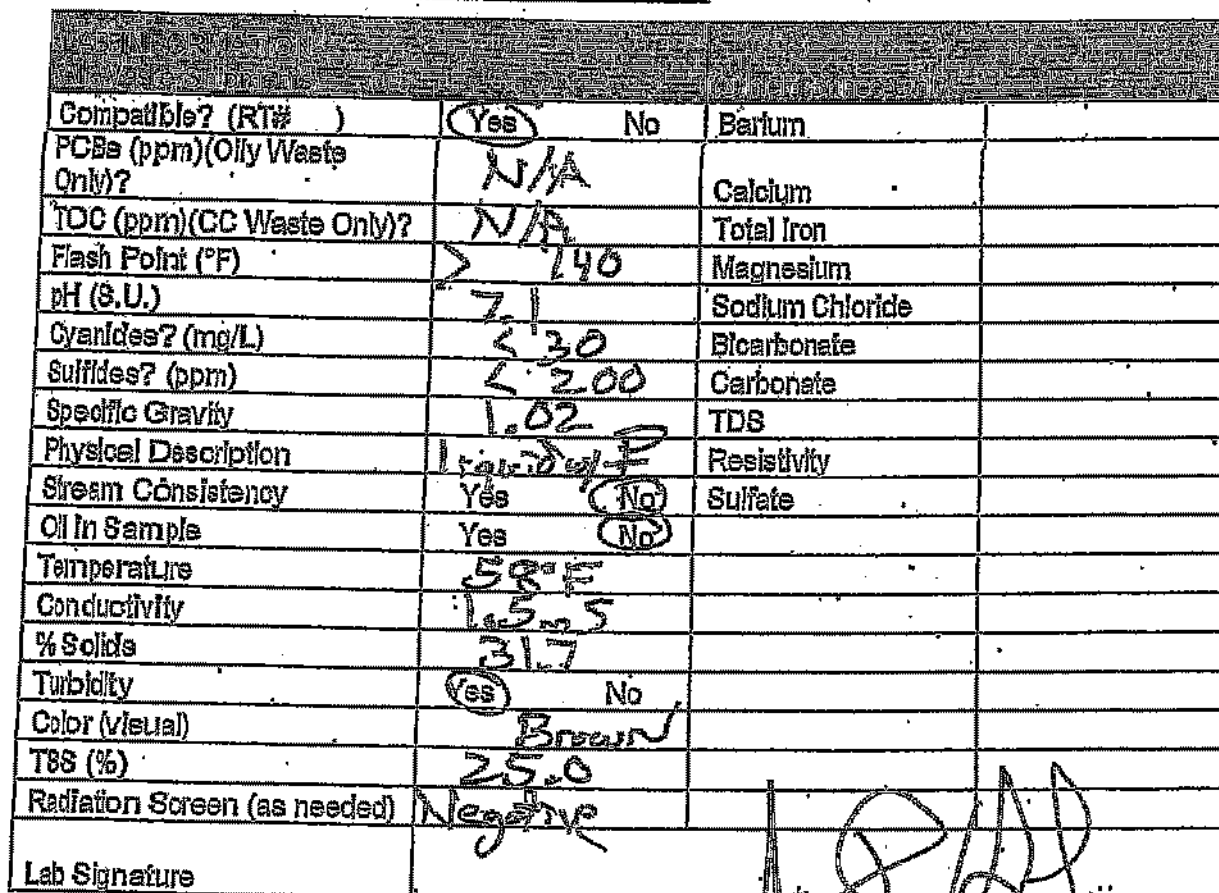 LAB INFORMATION
All Waste Shipments
Compatible? (RT# ) Yes No Barium
PCBs (ppm)(Oily Waste
Only)? N/A Calcium
TOC (ppm)(CC Waste Only)? N/A Total Iron
Flash Point (°F) > 140 Magnesium
pH (S.U.) 7.1 Sodium Chloride
Cyanides? (mg/L) < 30 Bicarbonate
Sulfides? (ppm) < 200 Carbonate
Specific Gravity 1.02 TDS
Physical Description Liquid w/ Resistivity
Stream Consistency Yes No Sulfate
Oil in Sample Yes No
Temperature 58°F
Conductivity 1.5 mS
% Solids 31.7
Turbidity Yes No
Color (visual) Brown
TSS (%) 25.0
Radiation Screen (as needed) Negative
Lab Signature